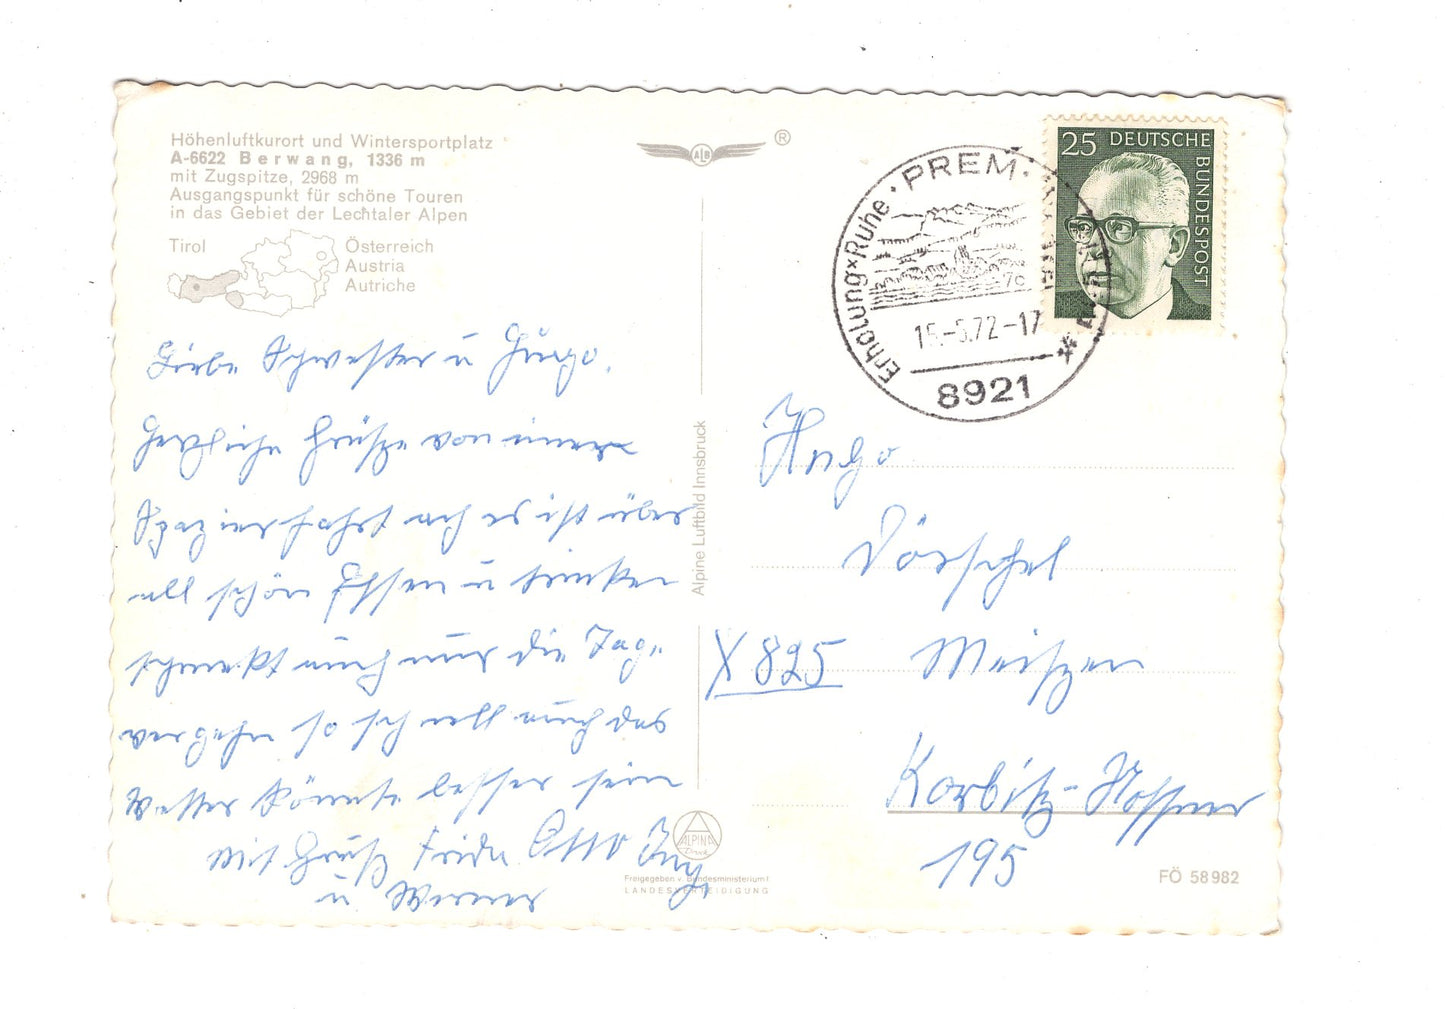 Höhenluftkurort und Wintersportplatz
A-6622 Berwang, 1336 m
mit Zugspitze, 2968 m
Ausgangspunkt für schöne Touren
in das Gebiet der Lechtaler Alpen
Tirol
Österreich
Austria
Autriche
ALB
®
Erholung × Ruhe · PREM ·
15.-5.72-17
8921
25 DEUTSCHE BUNDESPOST
Liebe Schwester u Hugo.
Herzliche Grüße von einer
Spazierfahrt ach es ist über
all schön Essen u trinken
schmekt auch nur die Tage
vergehn so schnell auch das
Wetter könnte besser sein
Mit Gruß Frida Otto Ing,
u. Werner
Alpine Luftbild Innsbruck
ALPINA
Druck
Freigegeben v. Bundesministerium f.
LANDESVERTEIDIGUNG
Hugo
Dörschel
X 825 Meißen
Korbitz-Nossner
195
FÖ 58982